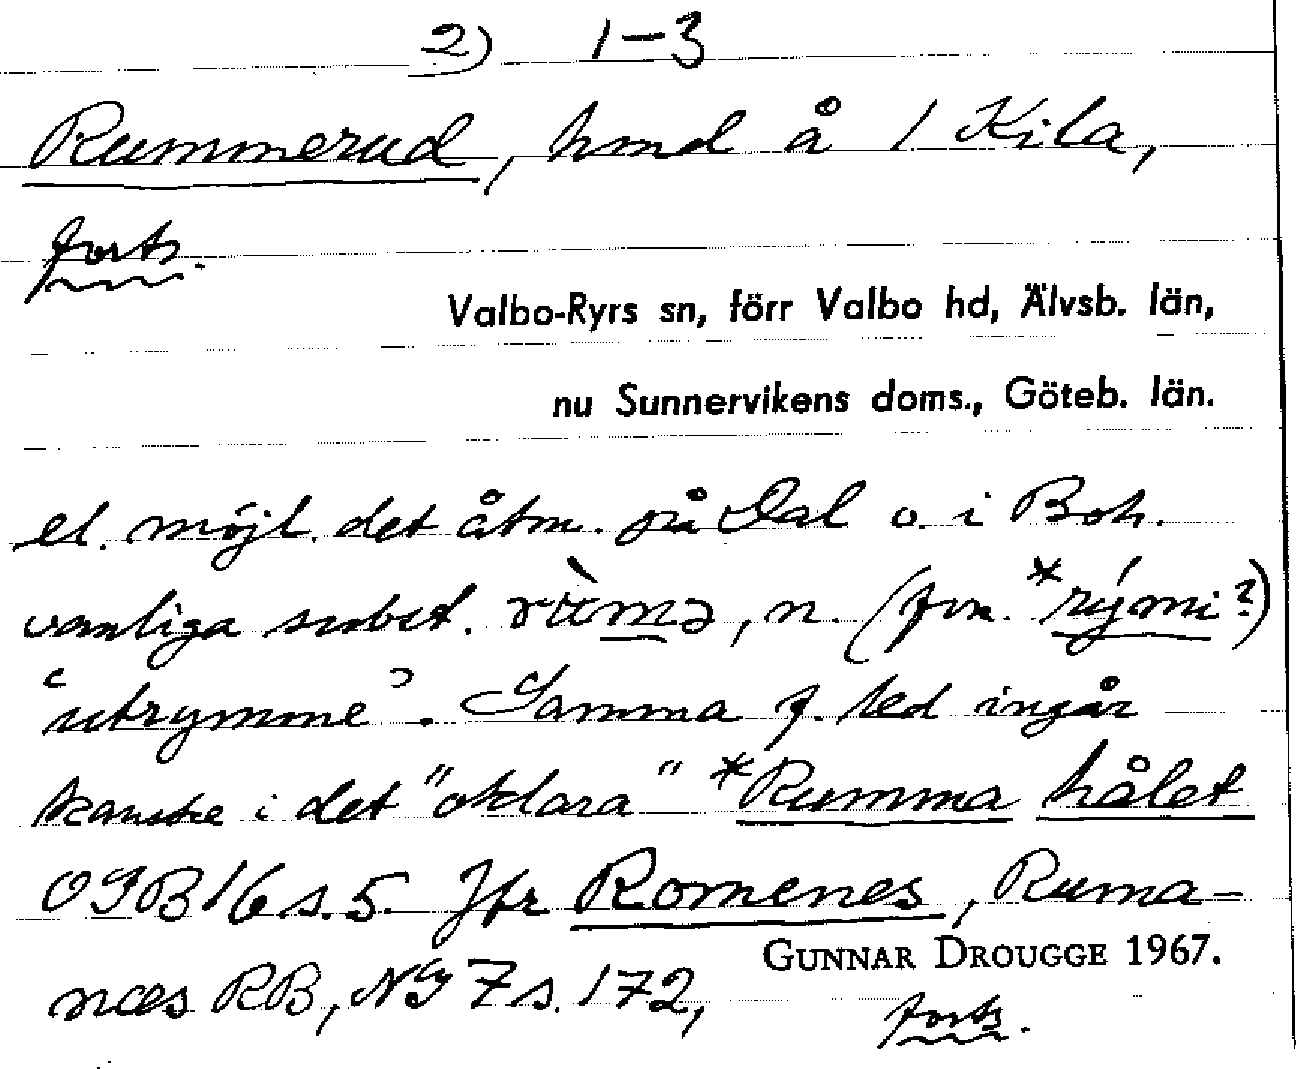 2) 1-3
Rummerud, hmd å 1 Kila,
forts.
Valbo-Ryrs sn, förr Valbo hd, Älvsb. län,
nu Sunnervikens doms., Göteb. län.
el. möjl. det åtm. på Dal o. i Boh.
vanliga subst. rùmə, n. (fvn. *rými?)
‘utrymme’. Samma f. led ingår
kanske i det "oklara" *Rumma hålet
OGB 16 s. 5. Jfr Romenes, Ruma-
næs RB, NG 7 s. 172,
GUNNAR DROUGGE 1967.
forts.